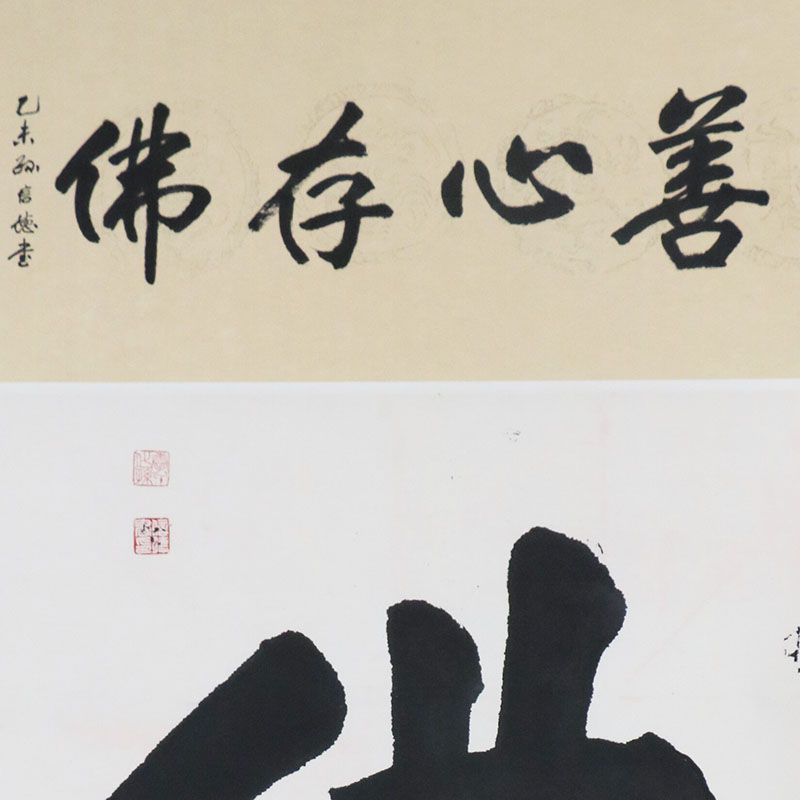 善心存佛
乙未孙信德书